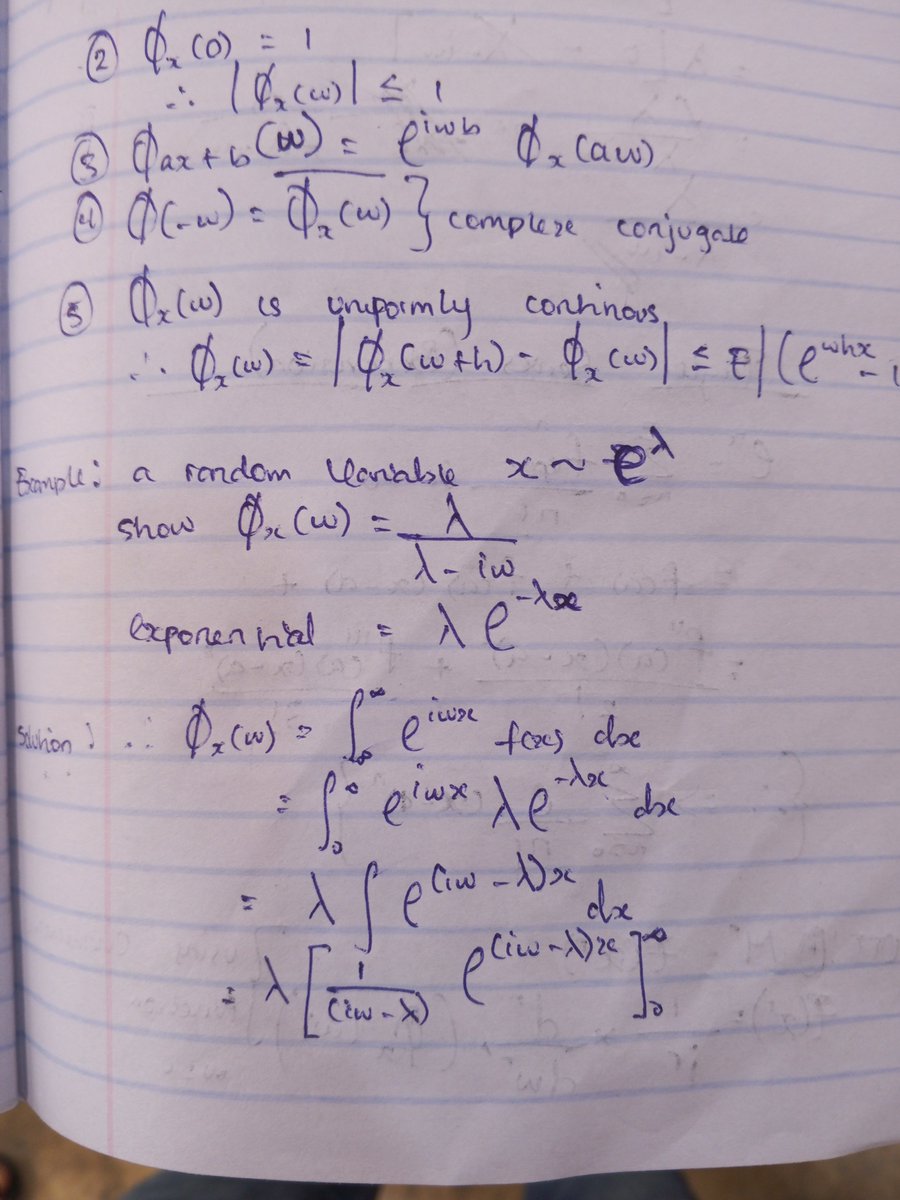 ② ϕₓ(0) = 1
∴ |ϕₓ(ω)| ≤ 1
③ ϕax+b(ω) = e^{iωb} ϕₓ(aω)
④ ϕ(-ω) = \overline{ϕₓ(ω)} } complex conjugate
⑤ ϕₓ(ω) is uniformly continous
∴ ϕₓ(ω) = |ϕₓ(ω+h) - ϕₓ(ω)| ≤ E|(e^{ωhx} - 1
Example: a random variable x ~ e^λ
show ϕₓ(ω) = λ / (λ - iω)
exponential = λe^{-λx}
Solution: ∴ ϕₓ(ω) = ∫_{-∞}^{∞} e^{iωx} f(x) dx
= ∫_0^∞ e^{iωx} λe^{-λx} dx
= λ ∫ e^{(iω - λ)x} dx
= λ [ 1/(iω - λ) e^{(iω - λ)x} ]_0^∞